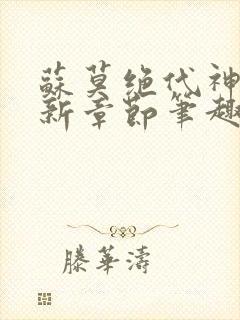 蘇莫絕代神
新章節筆趣
滕華濤